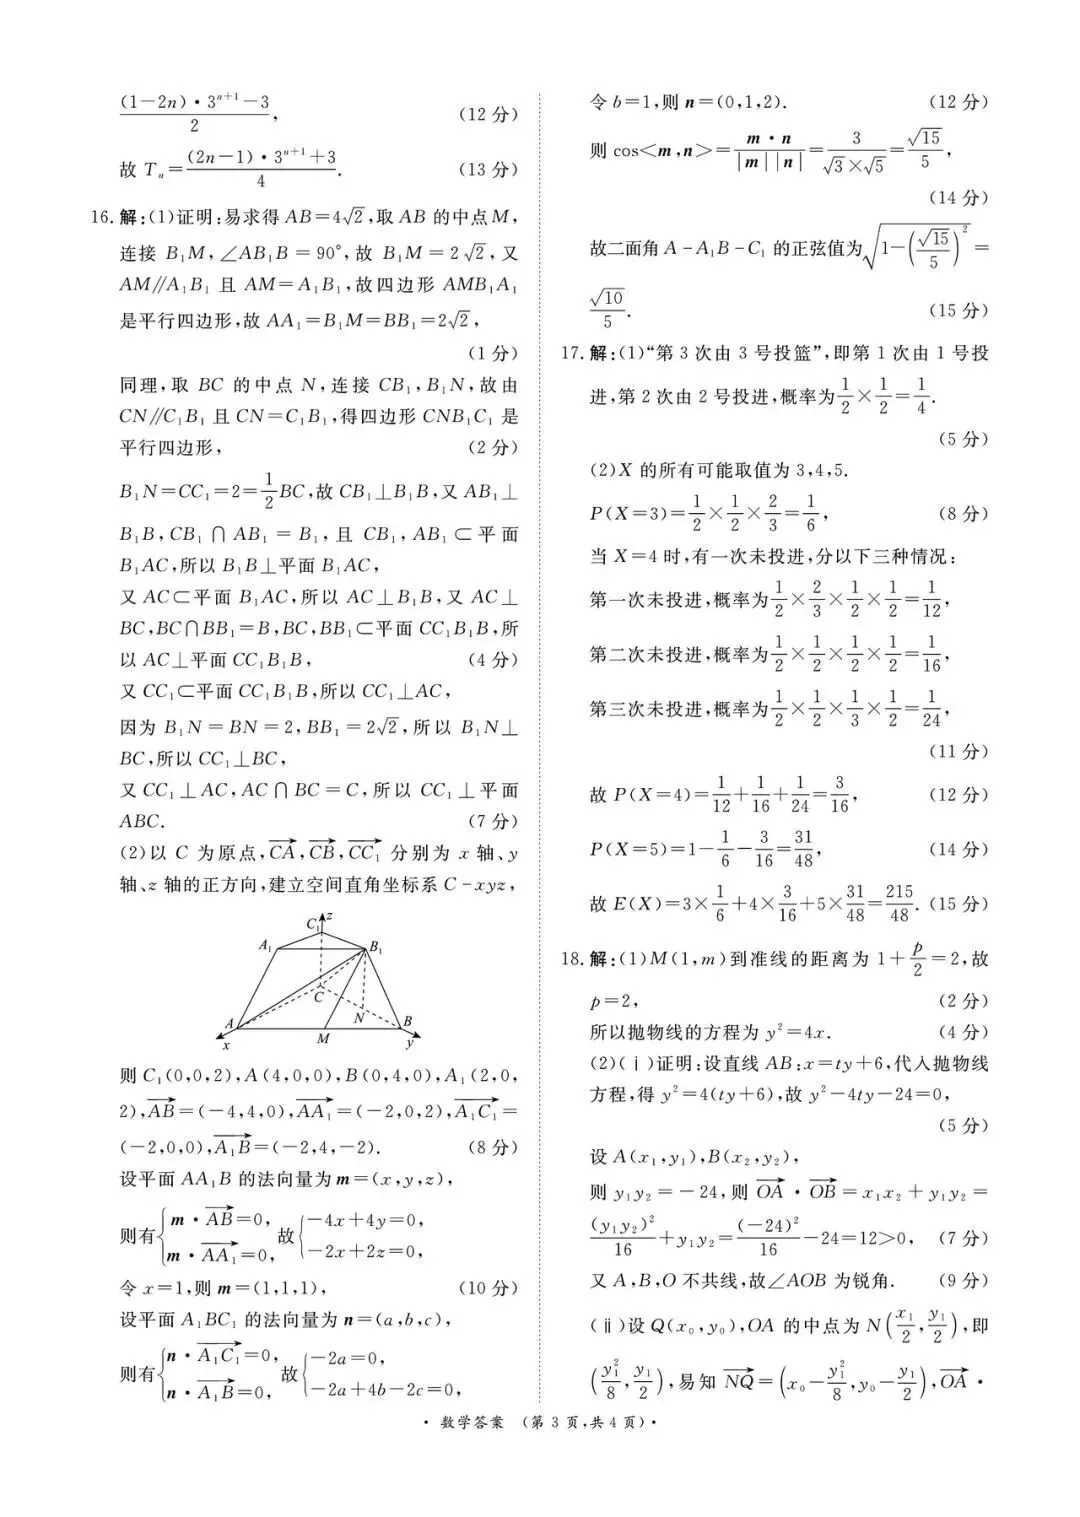 $\frac{(1-2n)\cdot 3^{n+1}-3}{2}$, (12 分)
故 $T_n=\frac{(2n-1)\cdot 3^{n+1}+3}{4}$. (13 分)
16. 解:(1)证明:易求得 AB=4√2,取 AB 的中点M,
连接 B₁M,∠AB₁B=90°,故 B₁M=2√2,又
AM∥A₁B₁ 且 AM=A₁B₁,故四边形 AMB₁A₁
是平行四边形,故 AA₁=B₁M=BB₁=2√2,
(1 分)
同理,取 BC 的中点 N,连接 CB₁,B₁N,故由
CN∥C₁B₁ 且 CN=C₁B₁,得四边形 CNB₁C₁ 是
平行四边形, (2 分)
B₁N=CC₁=2=$\frac{1}{2}$BC,故 CB₁⊥B₁B,又 AB₁⊥
B₁B,CB₁∩AB₁=B₁,且 CB₁,AB₁⊂平面
B₁AC,所以 B₁B⊥平面 B₁AC,
又 AC⊂平面 B₁AC,所以 AC⊥B₁B,又 AC⊥
BC,BC∩BB₁=B,BC,BB₁⊂平面 CC₁B₁B,所
以 AC⊥平面 CC₁B₁B, (4 分)
又 CC₁⊂平面 CC₁B₁B,所以 CC₁⊥AC,
因为 B₁N=BN=2,BB₁=2√2,所以 B₁N⊥
BC,所以 CC₁⊥BC,
又 CC₁⊥AC,AC∩BC=C,所以 CC₁⊥平面
ABC. (7 分)
(2)以 C 为原点,$\overrightarrow{CA}$,$\overrightarrow{CB}$,$\overrightarrow{CC_1}$ 分别为 x 轴、y
轴、z 轴的正方向,建立空间直角坐标系 C-xyz,
z
C₁
A₁
B₁
C
N
A
M
B
x
y
则 C₁(0,0,2),A(4,0,0),B(0,4,0),A₁(2,0,
2),$\overrightarrow{AB}$=(-4,4,0),$\overrightarrow{AA_1}$=(-2,0,2),$\overrightarrow{A_1C_1}$=
(-2,0,0),$\overrightarrow{A_1B}$=(-2,4,-2). (8 分)
设平面 AA₁B 的法向量为 m=(x,y,z),
则有$\begin{cases} m\cdot\overrightarrow{AB}=0, \\ m\cdot\overrightarrow{AA_1}=0, \end{cases}$故$\begin{cases} -4x+4y=0, \\ -2x+2z=0, \end{cases}$
令 x=1,则 m=(1,1,1), (10 分)
设平面 A₁BC₁ 的法向量为 n=(a,b,c),
则有$\begin{cases} n\cdot\overrightarrow{A_1C_1}=0, \\ n\cdot\overrightarrow{A_1B}=0, \end{cases}$故$\begin{cases} -2a=0, \\ -2a+4b-2c=0, \end{cases}$
令 b=1,则 n=(0,1,2). (12 分)
则 cos<m,n>=$\frac{m\cdot n}{|m||n|}=\frac{3}{\sqrt{3}\times\sqrt{5}}=\frac{\sqrt{15}}{5}$,
(14 分)
故二面角 A-A₁B-C₁ 的正弦值为$\sqrt{1-\left(\frac{\sqrt{15}}{5}\right)^2}$=
$\frac{\sqrt{10}}{5}$. (15 分)
17. 解:(1)“第 3 次由 3 号投篮”,即第 1 次由 1 号投
进,第 2 次由 2 号投进,概率为$\frac{1}{2}\times\frac{1}{2}=\frac{1}{4}$.
(5 分)
(2)X 的所有可能取值为 3,4,5.
P(X=3)=$\frac{1}{2}\times\frac{1}{2}\times\frac{2}{3}=\frac{1}{6}$, (8 分)
当 X=4 时,有一次未投进,分以下三种情况:
第一次未投进,概率为$\frac{1}{2}\times\frac{2}{3}\times\frac{1}{2}\times\frac{1}{2}=\frac{1}{12}$,
第二次未投进,概率为$\frac{1}{2}\times\frac{1}{2}\times\frac{1}{2}\times\frac{1}{2}=\frac{1}{16}$,
第三次未投进,概率为$\frac{1}{2}\times\frac{1}{2}\times\frac{1}{3}\times\frac{1}{2}=\frac{1}{24}$,
(11 分)
故 P(X=4)=$\frac{1}{12}+\frac{1}{16}+\frac{1}{24}=\frac{3}{16}$, (12 分)
P(X=5)=1-$\frac{1}{6}-\frac{3}{16}=\frac{31}{48}$, (14 分)
故 E(X)=3×$\frac{1}{6}$+4×$\frac{3}{16}$+5×$\frac{31}{48}=\frac{215}{48}$. (15 分)
18. 解:(1)M(1,m)到准线的距离为 1+$\frac{p}{2}$=2,故
p=2, (2 分)
所以抛物线的方程为 y²=4x. (4 分)
(2)(ⅰ)证明:设直线 AB:x=ty+6,代入抛物线
方程,得 y²=4(ty+6),故 y²-4ty-24=0,
(5 分)
设 A(x₁,y₁),B(x₂,y₂),
则 y₁y₂=-24,则 $\overrightarrow{OA}\cdot\overrightarrow{OB}$=x₁x₂+y₁y₂=
$\frac{(y_1y_2)^2}{16}+y_1y_2=\frac{(-24)^2}{16}-24=12>0$, (7 分)
又 A,B,O 不共线,故∠AOB 为锐角. (9 分)
(ⅱ)设 Q(x₀,y₀),OA 的中点为 N$\left(\frac{x_1}{2},\frac{y_1}{2}\right)$,即
$\left(\frac{y_1^2}{8},\frac{y_1}{2}\right)$,易知 $\overrightarrow{NQ}=\left(x_0-\frac{y_1^2}{8},y_0-\frac{y_1}{2}\right)$,$\overrightarrow{OA}\cdot$
· 数学答案 (第 3 页,共 4 页) ·